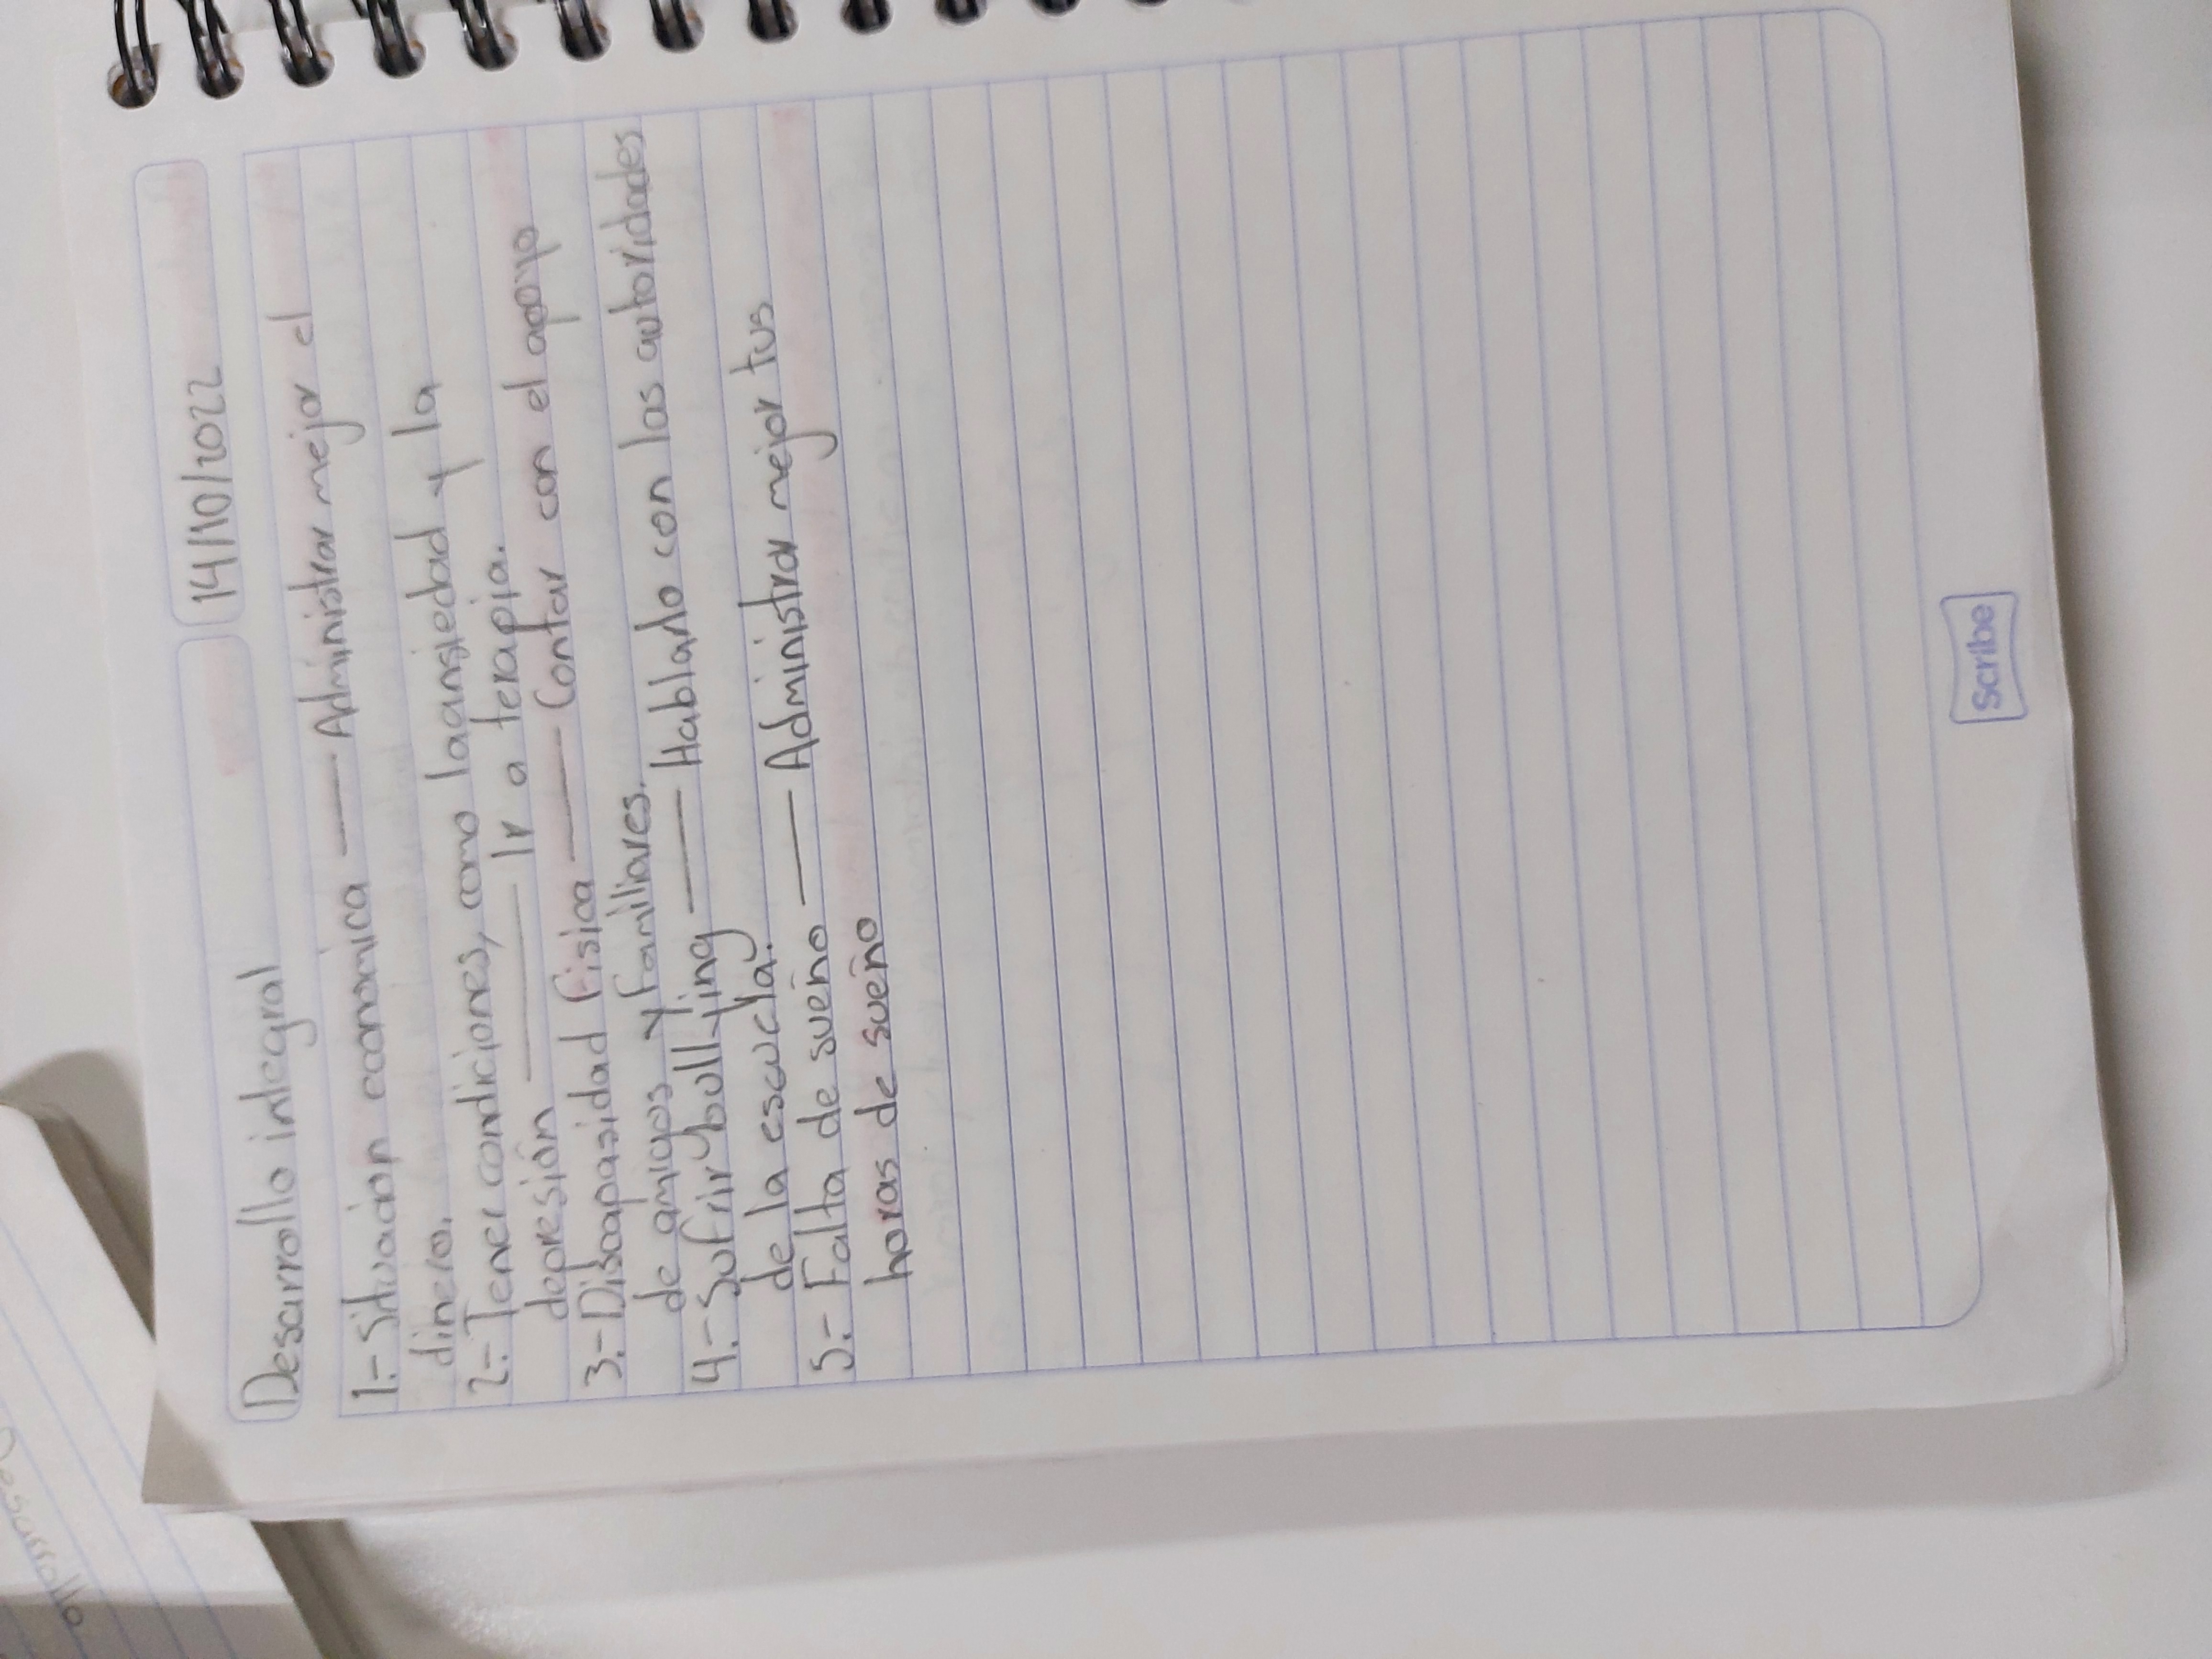 Desarrollo integral
14/10/2022
1.- Situación economica — Administrar mejor el
dinero.
2.- Tener condiciones, como la ansiedad y la
depresión — Ir a terapia.
3.- Discapasidad fisica — Contar con el apoyo
de amigos y familiares.
4.- Sufrir bullying — Hablarlo con las autoridades
de la escuela.
5.- Falta de sueño — Administrar mejor tus
horas de sueño
Scribe
Desarrollo